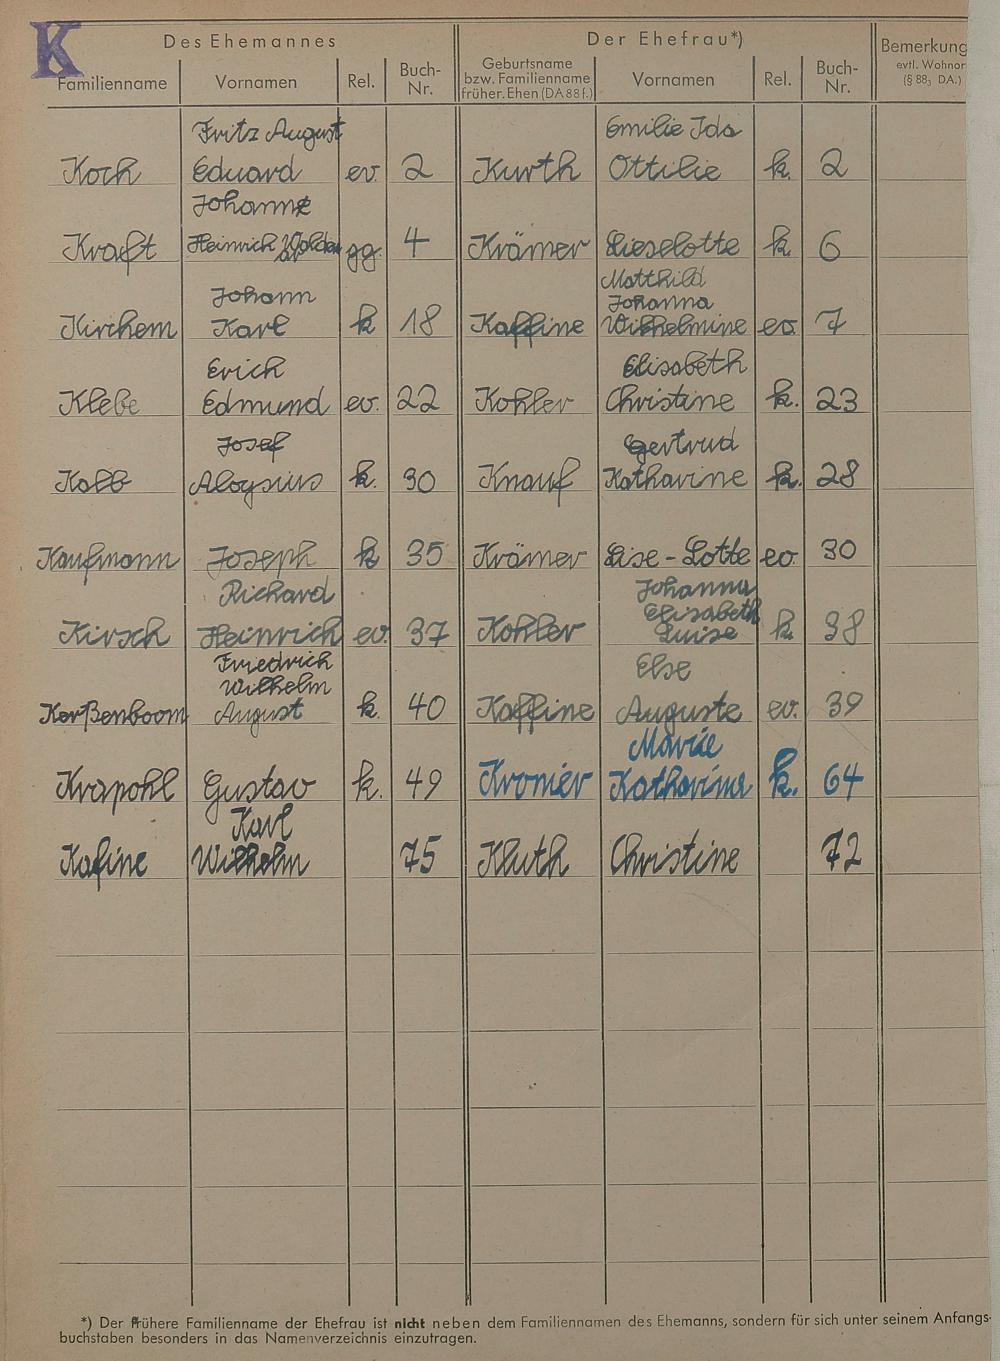 K
Des Ehemannes
Der Ehefrau*)
Bemerkung
evtl. Wohnor
(§ 88₃ DA.)
Familienname Vornamen Rel. Buch-Nr. Geburtsname bzw. Familienname früher. Ehen (DA 88 f.) Vornamen Rel. Buch-Nr.
Fritz August Emilie Ida
Koch Eduard ev. 2 Kurth Ottilie k. 2
Johann
Kraft Heinrich gg. 4 Krämer Lieselotte k 6
Johann Matthild Johanna
Kirchem Karl k 18 Kaffine Wilhelmine ev. 7
Erich Elisabeth
Klebe Edmund ev. 22 Kohler Christine k. 23
Josef Gertrud
Kolb Aloysius k. 30 Knauf Katharine k. 28
Kaufmann Joseph k 35 Krämer Lise-Lotte ev. 30
Richard Johanna Elisabeth
Kirsch Heinrich ev. 37 Kohler Luise k. 38
Friedrich Wilhelm Else
Kerßenboom August k. 40 Kaffine Auguste ev. 39
Marie
Krapohl Gustav k. 49 Kronier Katharina k. 64
Karl
Kafine Wilhelm 75 Kluth Christine 72
*) Der frühere Familienname der Ehefrau ist nicht neben dem Familiennamen des Ehemanns, sondern für sich unter seinem Anfangs-
buchstaben besonders in das Namenverzeichnis einzutragen.